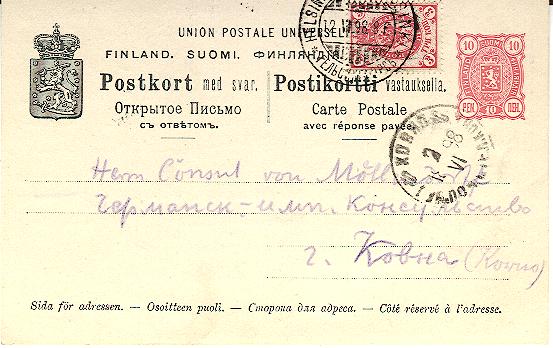 UNION POSTALE UNIVERSELLE.
FINLAND. SUOMI. ФИНЛЯНДІЯ.
Postkort med svar. Postikortti vastauksella.
Открытое Письмо Carte Postale
съ отвѣтомъ. avec réponse payée.
10 10
PEN. ПЕН.
Herrn Consul von
Германск. имп. Консульство
г. Ковна (Kovno)
Sida för adressen. — Osoitteen puoli. — Сторона для адреса. — Côté réservé à l'adresse.